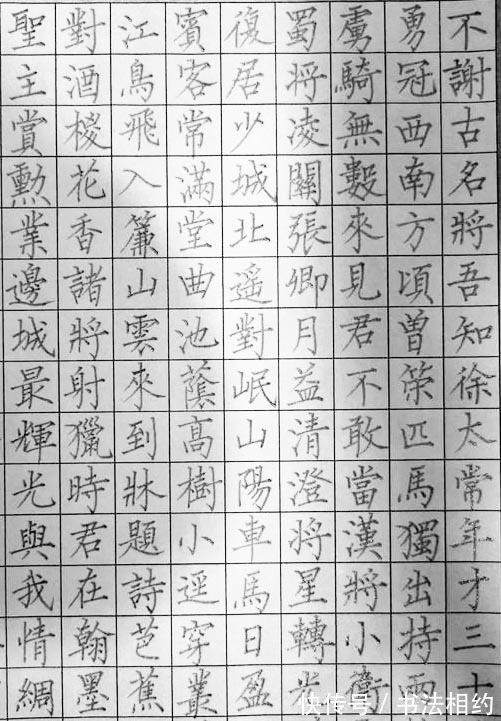 不謝古名將吾知徐太常年才三十
勇冠西南方頃曾策匹馬獨出持兩
虜騎無數來見君不敢當漢將小衛
蜀將凌關張卿月益清澄將星轉
復居少城北遥對岷山陽車馬日盈
賓客常滿堂曲池蔭高樹小逕穿叢
江鳥飛入簾山雲來到牀題詩芭蕉
對酒椶花香諸將射獵時君在翰墨
聖主賞勳業邊城最輝光與我情綢
快传号 / 书法相约